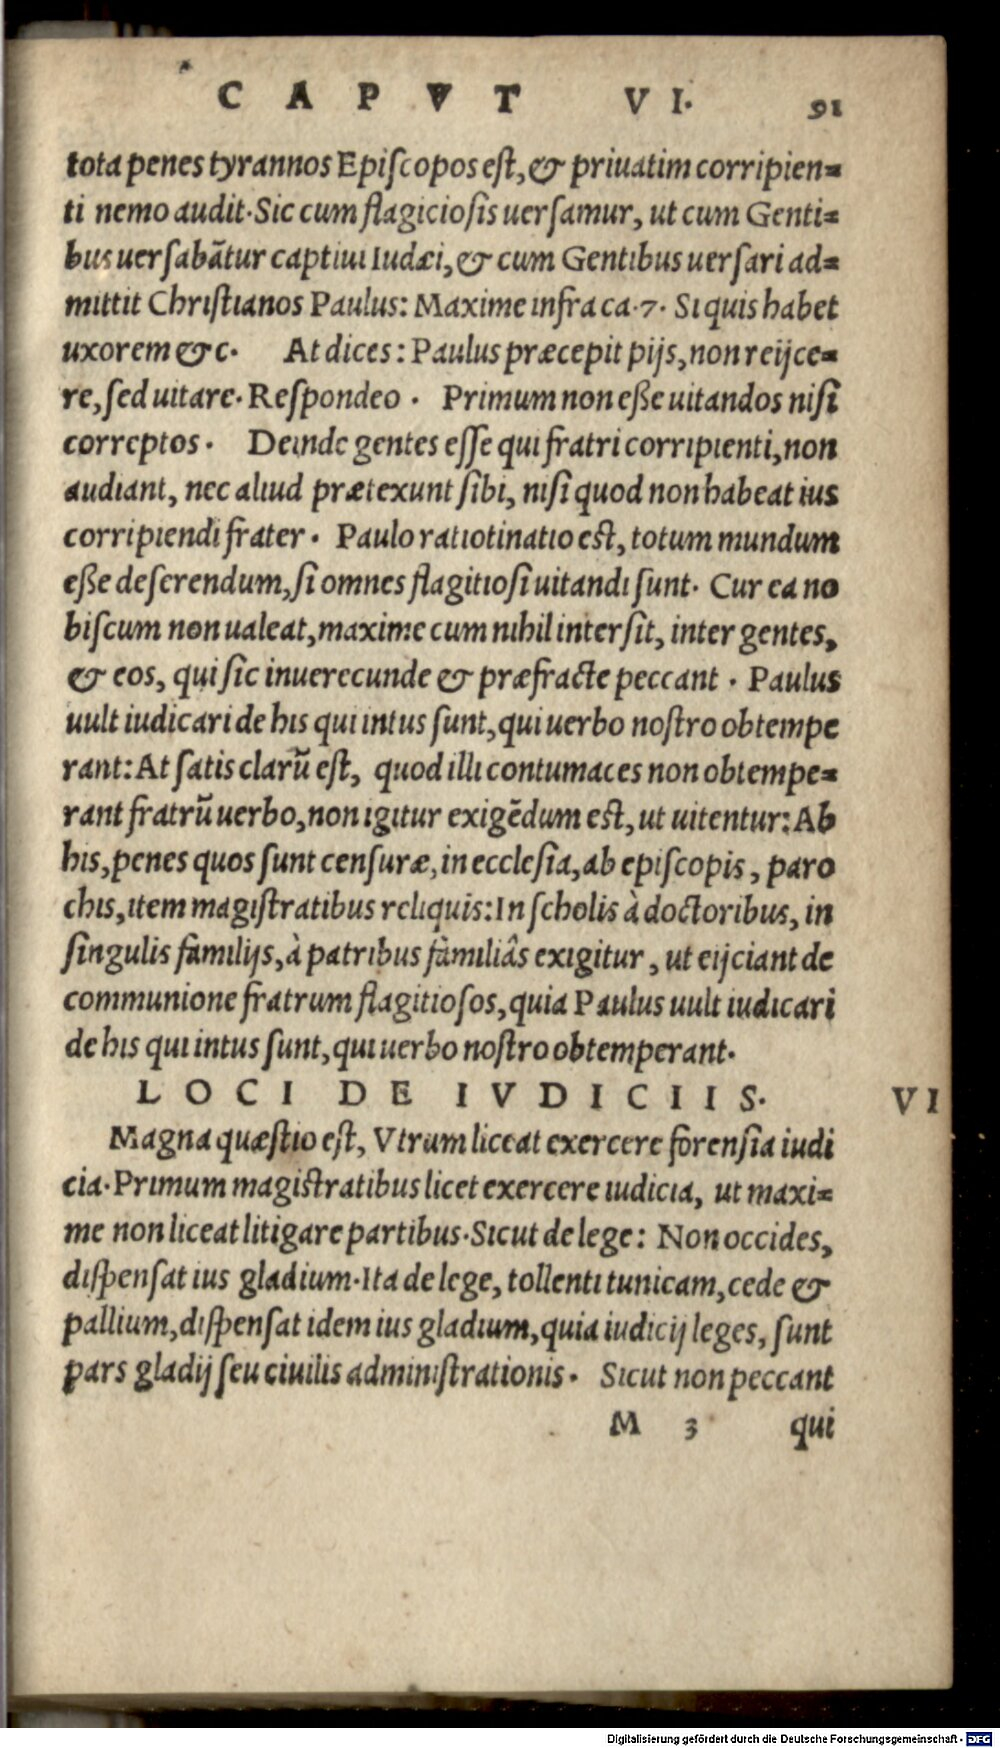 CAPVT VI. 91
tota penes tyrannos Episcopos est, & priuatim corripien=
ti nemo audit. Sic cum flagiciosis uersamur, ut cum Genti=
bus uersabãtur captiui Iudæi, & cum Gentibus uersari ad=
mittit Christianos Paulus: Maxime infra ca. 7. Si quis habet
uxorem &c. At dices: Paulus præcepit pijs, non reijce=
re, sed uitare. Respondeo. Primum non eße uitandos nisi
correptos. Deinde gentes esse qui fratri corripienti, non
audiant, nec aliud prætexunt sibi, nisi quod non habeat ius
corripiendi frater. Paulo ratiotinatio est, totum mundum
eße deserendum, si omnes flagitiosi uitandi sunt. Cur ea no
biscum non ualeat, maxime cum nihil intersit, inter gentes,
& eos, qui sic inuerecunde & præfracte peccant. Paulus
uult iudicari de his qui intus sunt, qui uerbo nostro obtempe
rant: At satis clarũ est, quod illi contumaces non obtempe=
rant fratrũ uerbo, non igitur exigẽdum est, ut uitentur: Ab
his, penes quos sunt censuræ, in ecclesia, ab episcopis, paro
chis, item magistratibus reliquis: In scholis à doctoribus, in
singulis familijs, à patribus familiâs exigitur, ut eijciant de
communione fratrum flagitiosos, quia Paulus uult iudicari
de his qui intus sunt, qui uerbo nostro obtemperant.
LOCI DE IVDICIIS. VI
Magna quæstio est, Vtrum liceat exercere forensia iudi
cia. Primum magistratibus licet exercere iudicia, ut maxi=
me non liceat litigare partibus. Sicut de lege: Non occides,
dispensat ius gladium. Ita de lege, tollenti tunicam, cede &
pallium, dispensat idem ius gladium, quia iudicij leges, sunt
pars gladij seu ciuilis administrationis. Sicut non peccant
M 3 qui
Digitalisierung gefördert durch die Deutsche Forschungsgemeinschaft - DFG